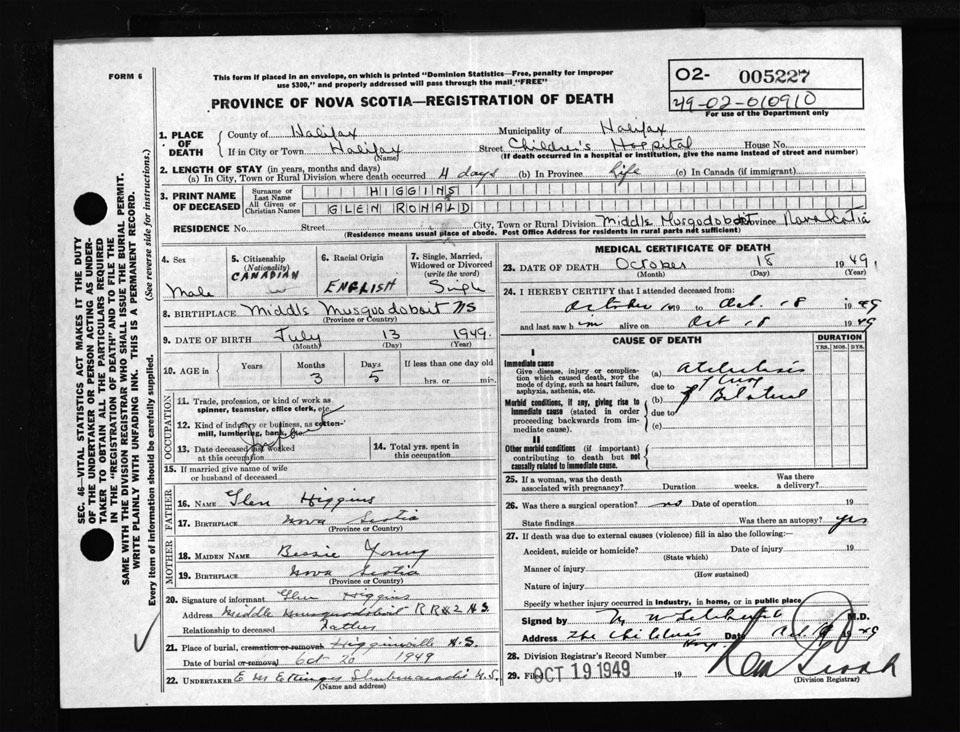 FORM 6
This form if placed in an envelope, on which is printed "Dominion Statistics—Free, penalty for improper
use $300," and properly addressed will pass through the mail "FREE"
PROVINCE OF NOVA SCOTIA—REGISTRATION OF DEATH
O2- 005227
49-02-010910
For use of the Department only
SEC. 46—VITAL STATISTICS ACT MAKES IT THE DUTY
OF THE UNDERTAKER OR PERSON ACTING AS UNDER-
TAKER TO OBTAIN ALL THE PARTICULARS REQUIRED
IN THE "REGISTRATION OF DEATH" AND TO FILE THE
SAME WITH THE DIVISION REGISTRAR WHO SHALL ISSUE THE BURIAL PERMIT.
WRITE PLAINLY WITH UNFADING INK. THIS IS A PERMANENT RECORD.
Every item of information should be carefully supplied. (See reverse side for instructions.)
1. PLACE OF DEATH
County of Halifax Municipality of Halifax
If in City or Town Halifax Street Children's Hospital House No.
(Name) (If death occurred in a hospital or institution, give the name instead of street and number)
2. LENGTH OF STAY (in years, months and days)
(a) In City, Town or Rural Division where death occurred 4 days (b) In Province Life (c) In Canada (if immigrant)
3. PRINT NAME OF DECEASED
Surname or Last Name HIGGINS
All Given or Christian Names GLEN RONALD
RESIDENCE No. Street City, Town or Rural Division Middle Musquodoboit Province Nova Scotia
(Residence means usual place of abode. Post Office Address for residents in rural parts not sufficient)
4. Sex Male
5. Citizenship (Nationality) CANADIAN
6. Racial Origin ENGLISH
7. Single, Married, Widowed or Divorced (write the word) Single
8. BIRTHPLACE Middle Musquodoboit NS
(Province or Country)
9. DATE OF BIRTH July 13 1949
(Month) (Day) (Year)
10. AGE in Years Months 3 Days 5 If less than one day old hrs. or min.
OCCUPATION
11. Trade, profession or kind of work as spinner, teamster, office clerk, etc.
12. Kind of industry or business, as cotton-mill, lumbering, bank, etc.
Infant
13. Date deceased last worked at this occupation
14. Total yrs. spent in this occupation
15. If married give name of wife or husband of deceased
FATHER
16. NAME Glen Higgins
17. BIRTHPLACE Nova Scotia
(Province or Country)
MOTHER
18. MAIDEN NAME Bessie Young
19. BIRTHPLACE Nova Scotia
(Province or Country)
20. Signature of informant Glen Higgins
Address Middle Musquodoboit RR#2 N.S.
Relationship to deceased Father
21. Place of burial, cremation or removal Higginsville N.S.
Date of burial or removal Oct 20 1949
22. UNDERTAKER E M Ettinger Shubenacadie N.S.
(Name and address)
MEDICAL CERTIFICATE OF DEATH
23. DATE OF DEATH October 18 1949
(Month) (Day) (Year)
24. I HEREBY CERTIFY that I attended deceased from:
October 19 to Oct. 18 1949
and last saw him alive on Oct 18 1949
CAUSE OF DEATH DURATION
YRS. MOS. DYS.
I
Immediate cause
Give disease, injury or complication which caused death, NOT the mode of dying, such as heart failure, asphyxia, asthenia, etc.
(a) Atelectasis
due to
Morbid conditions, if any, giving rise to immediate cause (stated in order proceeding backwards from immediate cause).
(b) Bilateral
due to
(c)
II
Other morbid conditions (if important) contributing to death but not causally related to immediate cause.
25. If a woman, was the death associated with pregnancy? Duration weeks. Was there a delivery?
26. Was there a surgical operation? no Date of operation 19
State findings Was there an autopsy? yes
27. If death was due to external causes (violence) fill in also the following:—
Accident, suicide or homicide? Date of injury 19
(State which)
Manner of injury
(How sustained)
Nature of injury
Specify whether injury occurred in industry, in home, or in public place
Signed by M.D.
Address The Children's Hosp. Date Oct. 19 1949
28. Division Registrar's Record Number
29. Filed OCT 19 1949 19
(Division Registrar)